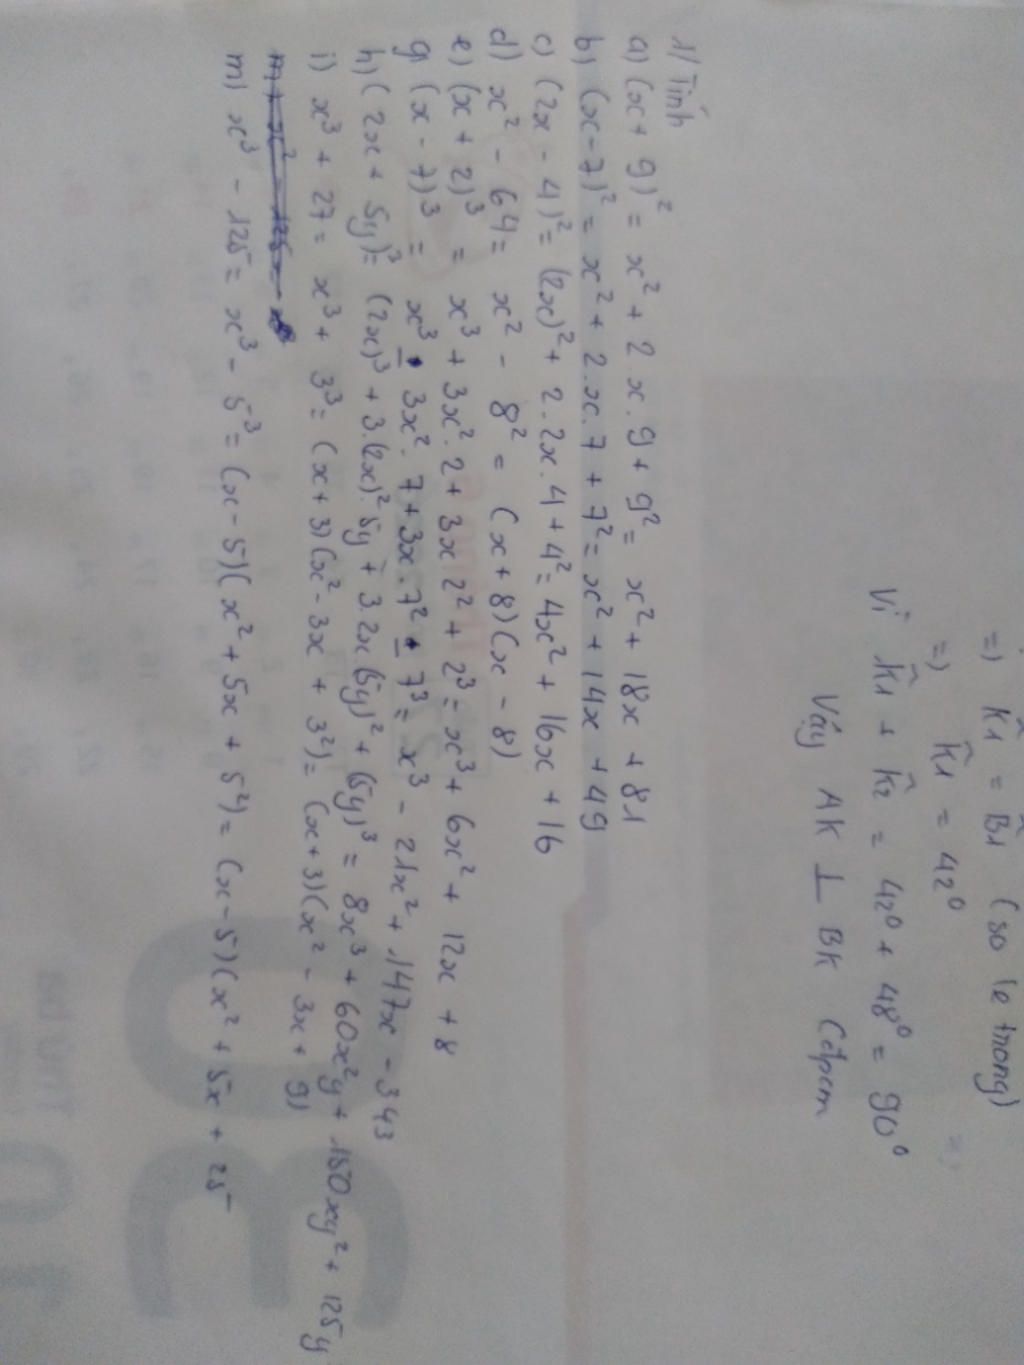 =) K̂1 = B̂1 (so le trong)
=) K̂1 = 42⁰
Vì K̂1 + K̂2 = 42⁰ + 48⁰ = 90⁰
Vậy AK ⊥ BK Cđpcm
1/ Tính
a) (x + 9)² = x² + 2 x . 9 + 9² = x² + 18x + 81
b) (x - 7)² = x² + 2 . x . 7 + 7² = x² + 14x + 49
c) (2x - 4)² = (2x)² + 2 . 2x . 4 + 4² = 4x² + 16x + 16
d) x² - 64 = x² - 8² = (x + 8)(x - 8)
e) (x + 2)³ = x³ + 3x² . 2 + 3x 2² + 2³ = x³ + 6x² + 12x + 8
g) (x - 7)³ = x³ - 3x² . 7 + 3x . 7² - 7³ = x³ - 21x² + 147x - 343
h) (2x + 5y)³ = (2x)³ + 3.(2x)² . 5y + 3.2x (5y)² + (5y)³ = 8x³ + 60x²y + 150xy² + 125y
i) x³ + 27 = x³ + 3³ = (x + 3)(x² - 3x + 3²) = (x + 3)(x² - 3x + 9)
m) x³ - 125 = x³ - 5³ = (x - 5)(x² + 5x + 5²) = (x - 5)(x² + 5x + 25